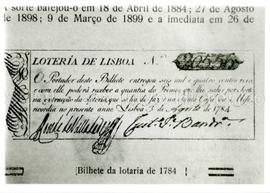 A sorte bafejou-o em 18 de Abril de 1884; 27 de Agosto
de 1898; 9 de Março de 1899 e a imediata em 26 de
LOTERÍA DE LISBOA N.
O Portador deste Bilhete entregou seis mil e quatro centos reis
e com elle poderá receber a quantia do Premio, que lhe sahir por sorte
na extracção da Loteria, que se ha de fazer na Santa Casa da Mise
ricordia no presente anno Lisboa 3 de Agosto de 1784
[Bilhete da lotaria de 1784]